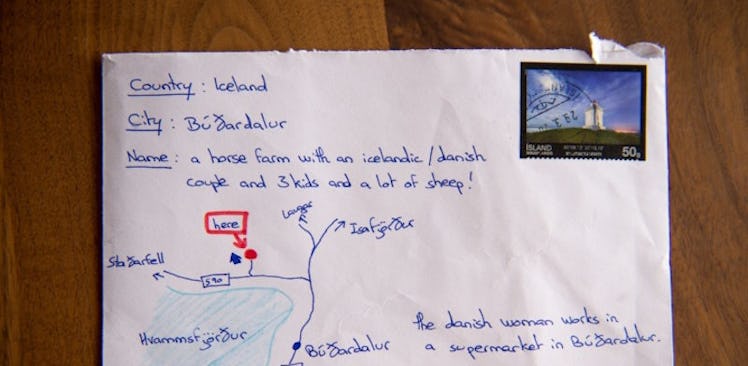 Country : Iceland
City : Búðardalur
Name : a horse farm with an icelandic/danish
couple and 3 kids and a lot of sheep!
here
Laugar
Isafjörður
Staðarfell
590
Hvammsfjörður
Búðardalur
the danish woman works in
a supermarket in Búðardalur.
ÍSLAND
50g